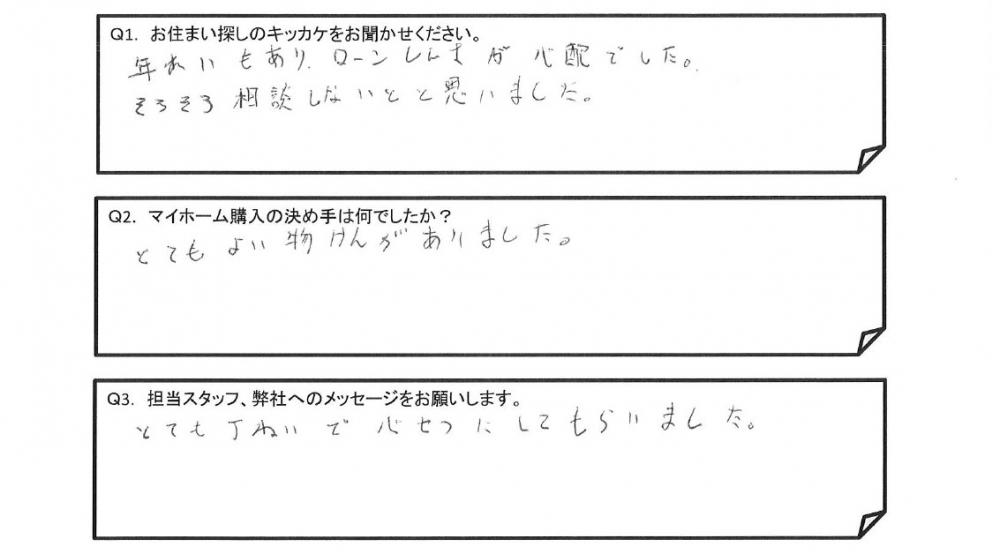 Q1. お住まい探しのキッカケをお聞かせください。
年れいもあり、ローンしんさが心配でした。
そろそろ相談しないとと思いました。
Q2. マイホーム購入の決め手は何でしたか？
とてもよい物けんがありました。
Q3. 担当スタッフ、弊社へのメッセージをお願いします。
とても丁ねいで心せつにしてもらいました。